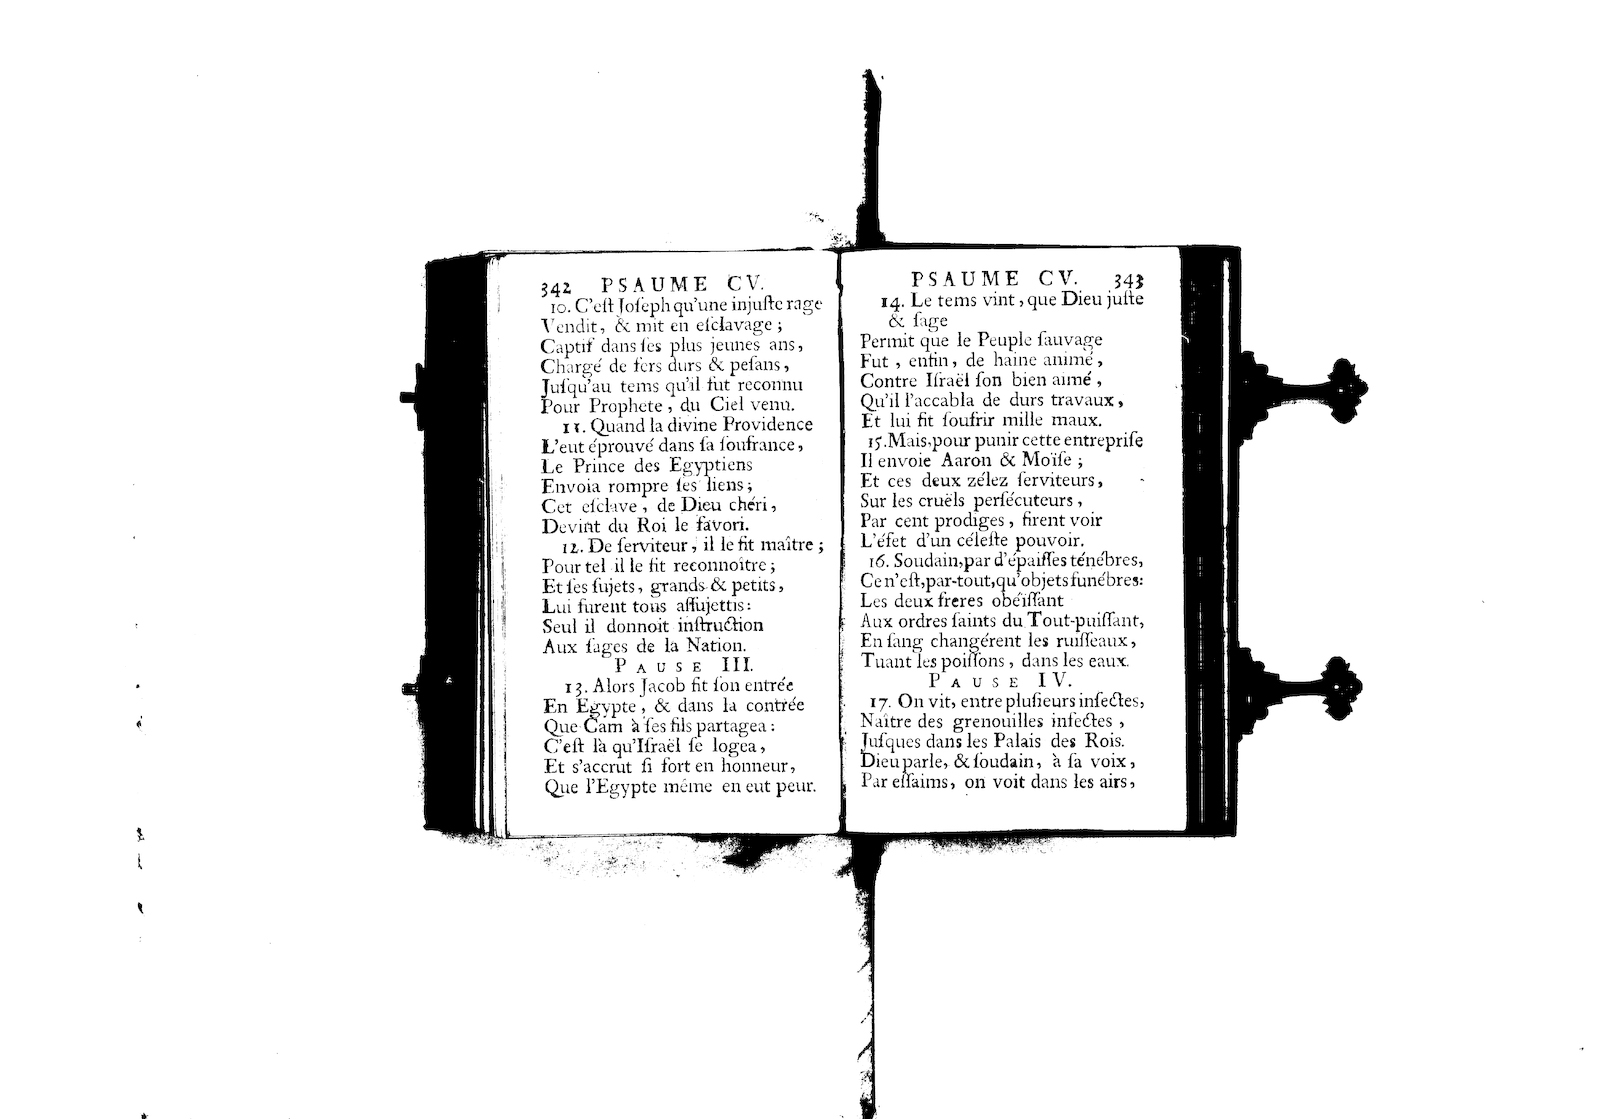 342 PSAUME CV.
10. C'eſt Joſeph qu'une injuſte rage
Vendit, & mit en eſclavage ;
Captif dans ſes plus jeunes ans,
Chargé de fers durs & peſans,
Juſqu'au tems qu'il fut reconnu
Pour Prophete, du Ciel venu.
11. Quand la divine Providence
L'eut éprouvé dans ſa ſoufrance,
Le Prince des Egyptiens
Envoia rompre ſes liens ;
Cet eſclave, de Dieu chéri,
Devint du Roi le favori.
12. De ſerviteur, il le fit maître ;
Pour tel il le fit reconnoître ;
Et ſes ſujets, grands & petits,
Lui furent tous aſſujettis :
Seul il donnoit inſtruction
Aux ſages de la Nation.
PAUSE III.
13. Alors Jacob fit ſon entrée
En Egypte, & dans la contrée
Que Cam à ſes fils partagea :
C'eſt là qu'Iſraël ſe logea,
Et s'accrut ſi fort en honneur,
Que l'Egypte même en eut peur.
PSAUME CV. 343
14. Le tems vint, que Dieu juſte
& ſage
Permit que le Peuple ſauvage
Fut, enfin, de haine animé,
Contre Iſraël ſon bien aimé,
Qu'il l'accabla de durs travaux,
Et lui fit ſoufrir mille maux.
15. Mais, pour punir cette entrepriſe
Il envoie Aaron & Moïſe ;
Et ces deux zélez ſerviteurs,
Sur les cruëls perſécuteurs,
Par cent prodiges, firent voir
L'éfet d'un céleſte pouvoir.
16. Soudain, par d'épaiſſes ténébres,
Ce n'eſt, par-tout, qu'objets funébres:
Les deux freres obéiſſant
Aux ordres ſaints du Tout-puiſſant,
En ſang changérent les ruiſſeaux,
Tuant les poiſſons, dans les eaux.
PAUSE IV.
17. On vit, entre pluſieurs inſectes,
Naître des grenouilles infectes,
Juſques dans les Palais des Rois.
Dieu parle, & ſoudain, à ſa voix,
Par eſſaims, on voit dans les airs,